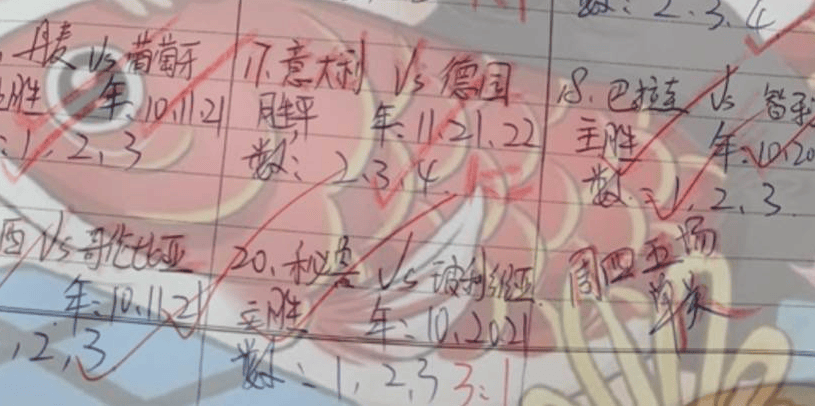 数: 2.3.4
丹麦 Vs 葡萄牙
胜 年: 10.11.21
: 1, 2, 3
17. 意大利 Vs 德国
胜平 年: 11.21.22
数: 2.3.4
18. 巴拉圭 Vs 智利
主胜 年: 10.20
数: 1, 2, 3
西 Vs 哥伦比亚
年: 10.11.21
, 2, 3
20. 秘鲁 Vs 玻利维亚
主胜 年: 10.20.21
数: 1, 2, 3 3:1
周四五场